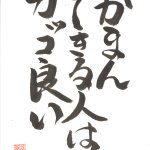 がまん
できる人は
カッコ良い